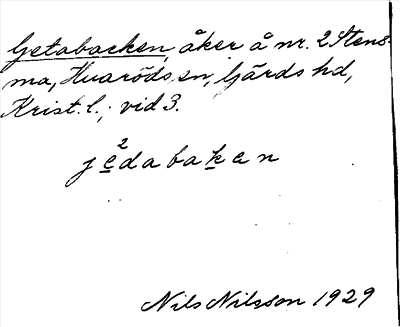 Getabacken, åker å nr. 2 Stens-
ma, Huaröds sn, Gärds hd,
Krist. l.; vid 3.
2
jedabakan
Nils Nilsson 1929